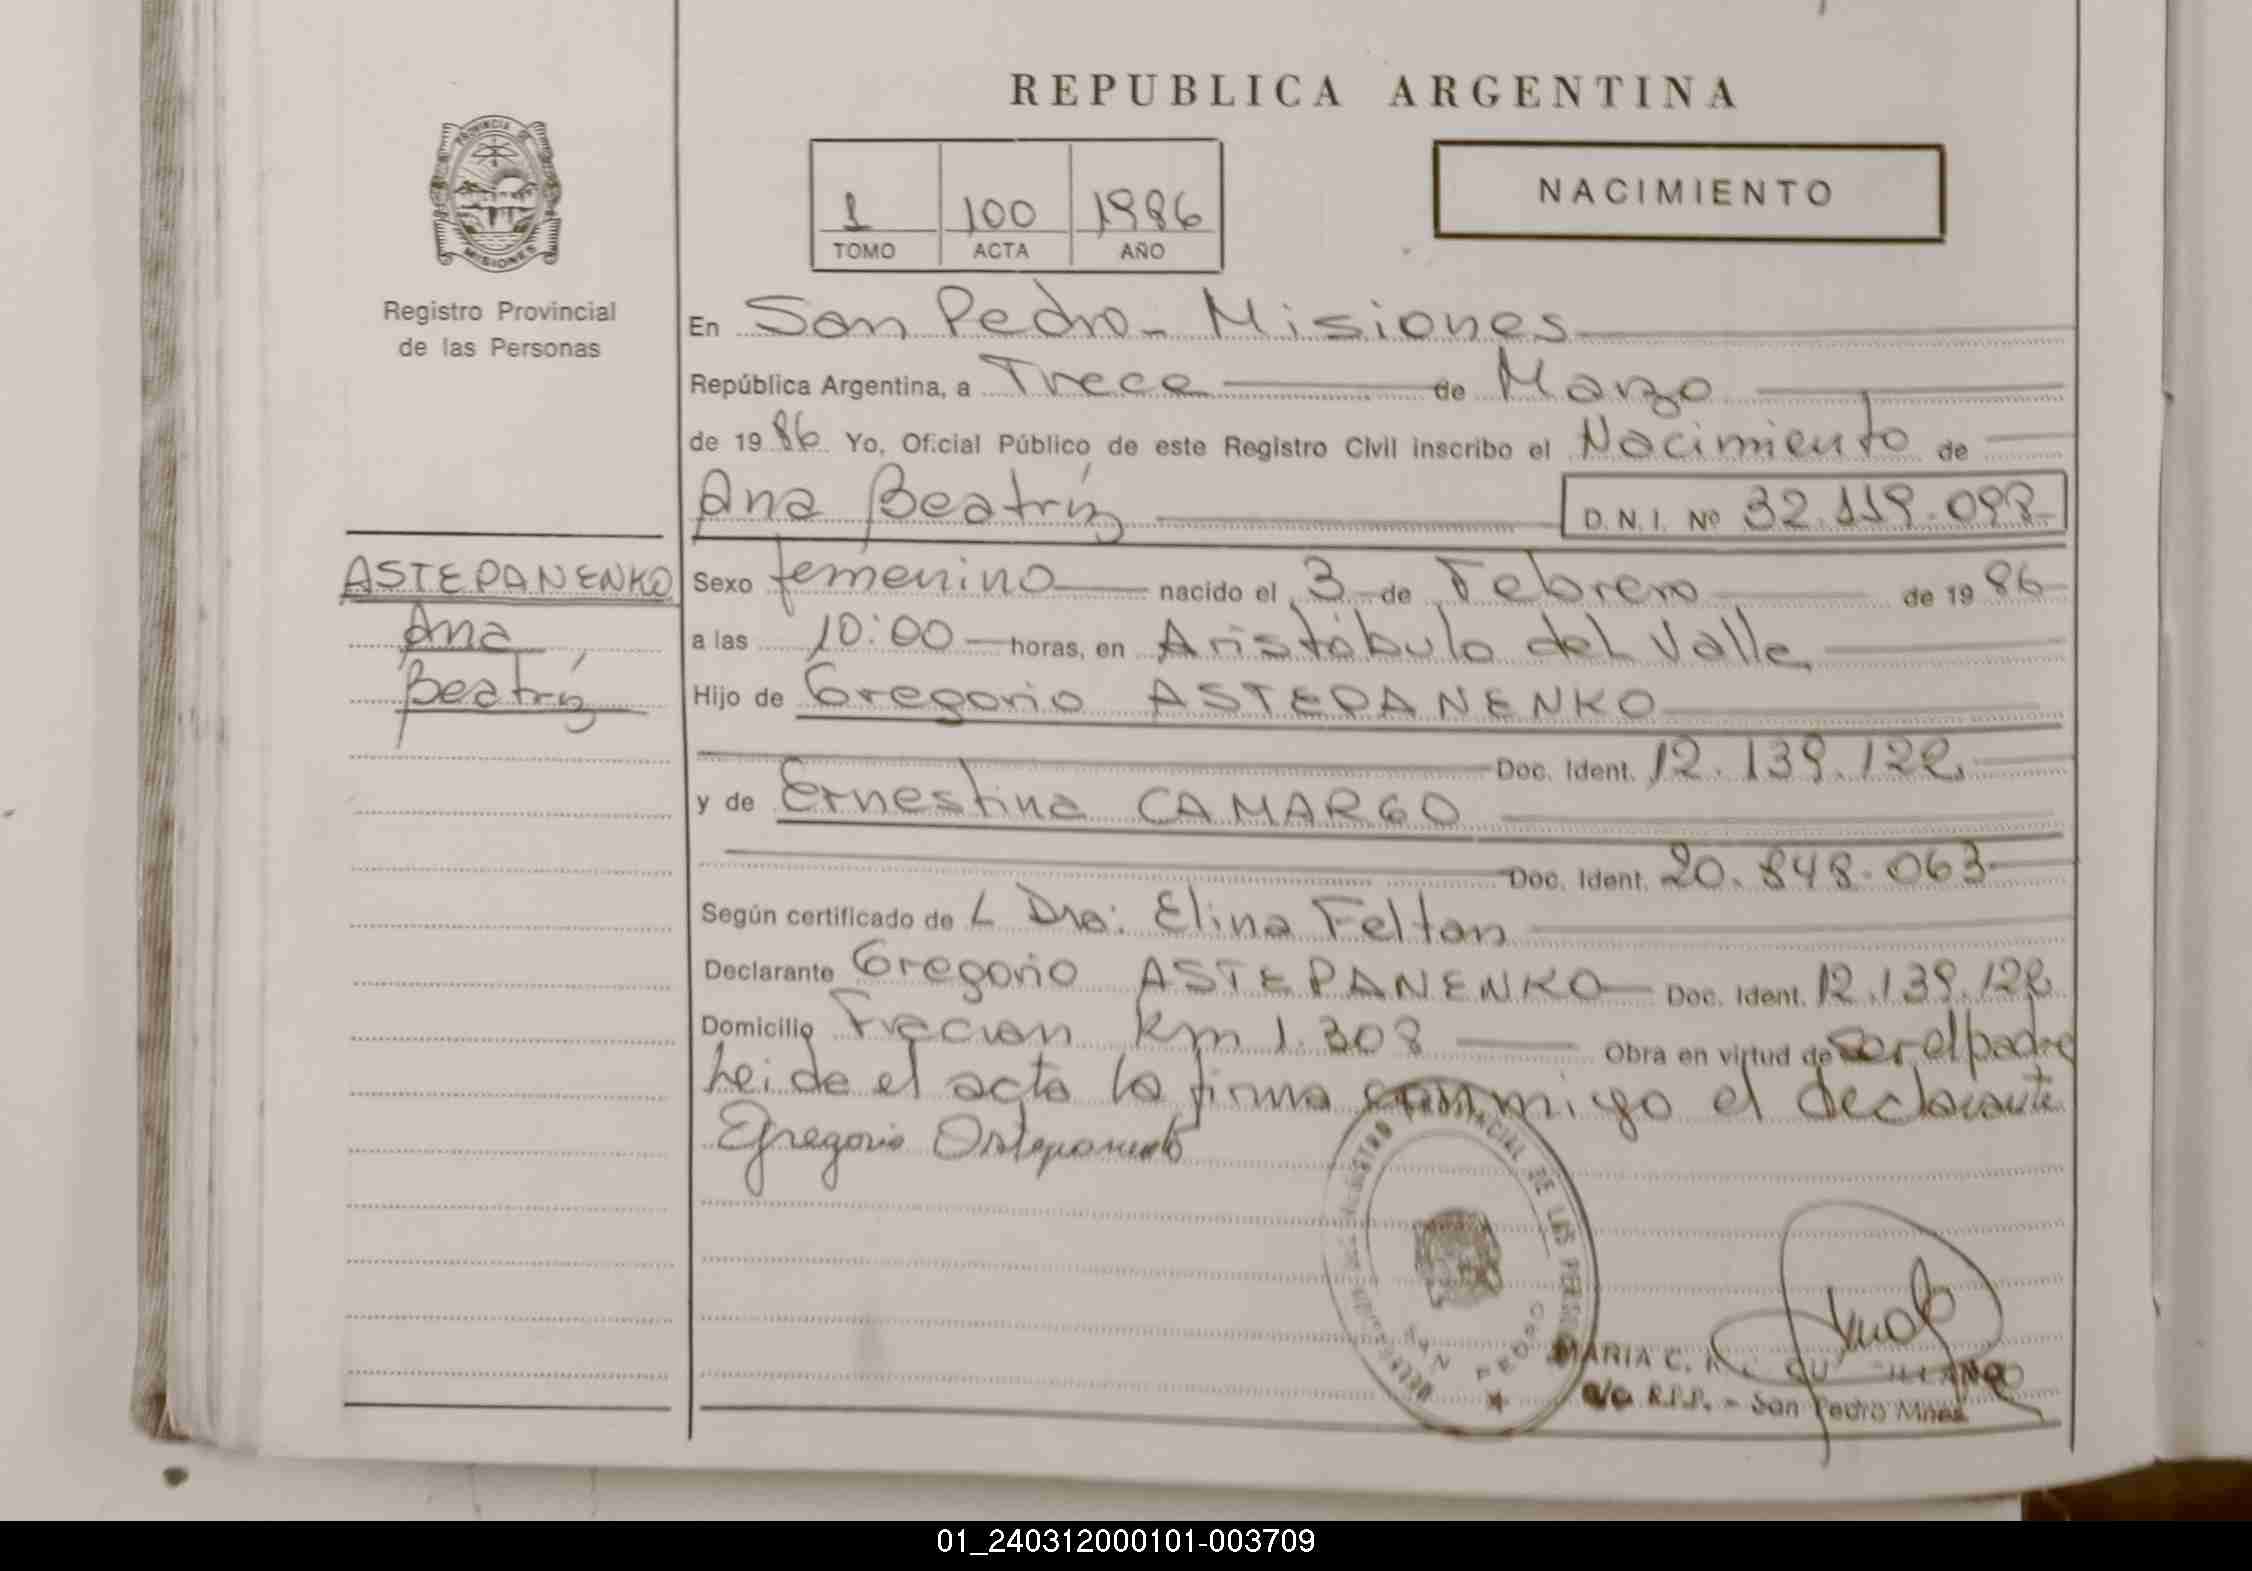 REPUBLICA ARGENTINA
PROVINCIA DE
MISIONES
Registro Provincial
de las Personas
1 100 1986
TOMO ACTA AÑO
NACIMIENTO
En San Pedro - Misiones
República Argentina, a Trece de Marzo
de 1986 Yo, Oficial Público de este Registro Civil inscribo el Nacimiento de
Ana Beatríz D.N.I. Nº 32.119.098
ASTEPANENKO
Ana
Beatríz
Sexo femenino nacido el 3 de Febrero de 1986
a las 10:00 horas, en Aristóbulo del Valle
Hijo de Gregorio ASTEPANENKO
Doc. Ident. 12.139.122
y de Ernestina CAMARGO
Doc. Ident. 20.848.063
Según certificado de L Dra: Elina Feltan
Declarante Gregorio ASTEPANENKO Doc. Ident. 12.139.122
Domicilio Fracion Km 1.308 Obra en virtud de ser el padre
Leida el acta la firma conmigo el declarante
Gregorio
REGISTRO PROVINCIAL DE LAS PERSONAS
SAN PEDRO
MARIA C.
R.P.P. - San Pedro Mnes
01_240312000101-003709